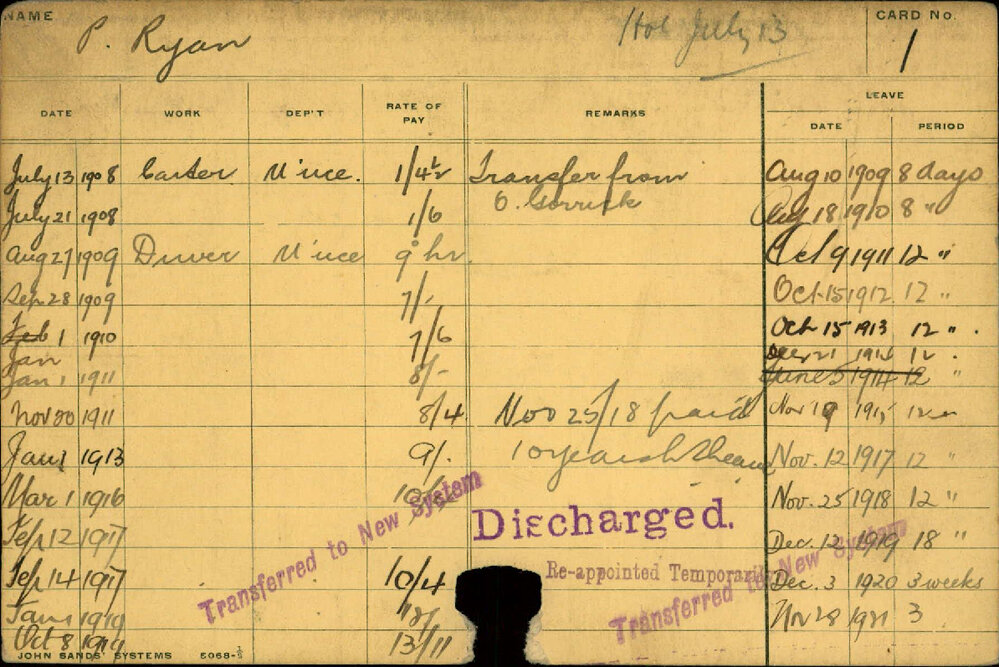 NAME P. Ryan July 13 CARD No. 1
DATE WORK DEP'T RATE OF PAY REMARKS LEAVE
DATE PERIOD
July 13 1908 Carter M'nce. 1/4½ Transfer from Aug 10 1909 8 days
July 21 1908 1/6 O. Gorrick Aug 18 1910 8 "
Aug 27 1909 Driver M'nce 9 hr. Oct 9 1911 12 "
Sep 28 1909 7/- Oct 15 1912 12 "
Feb 1 1910 7/6 Oct 15 1913 12 "
Jan
Jan 1 1911 8/- June 5 1914 12 "
Nov 30 1911 8/4 Nov 25/18 paid Nov 19 1915 12 "
Jan 1 1913 9/- 10 years Nov. 12 1917 12 "
Mar 1 1916 Nov. 25 1918 12 "
Transferred to New System
Discharged.
Sep 12 1917 Dec. 12 1919 18 "
Sep 14 1917 10/4 Re-appointed Temporarily Dec. 3 1920 3 weeks
Transferred to New System
Jan 1 1919 Nov 28 1921 3
Oct 8 1919 13/11
JOHN SANDS' SYSTEMS